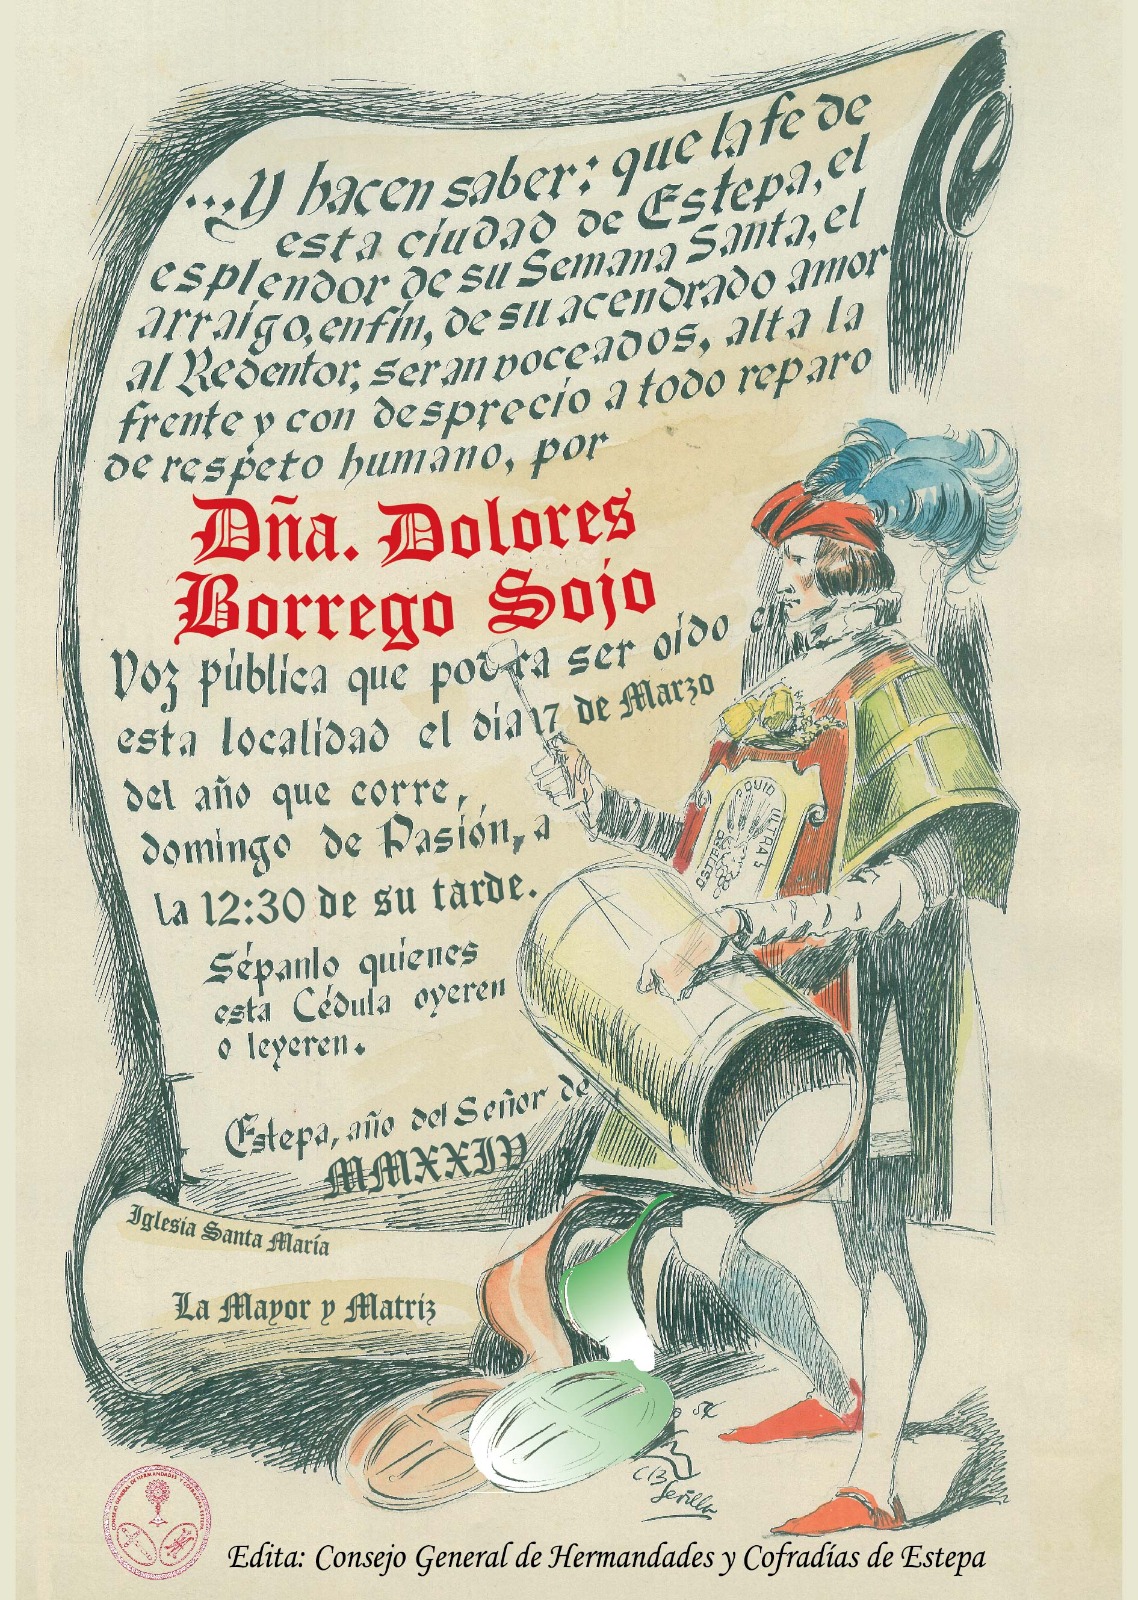 ...Y hacen saber: que la fe de
esta ciudad de Estepa, el
esplendor de su Semana Santa, el
arraigo, enfín, de su acendrado amor
al Redentor, seran voceados, alta la
frente y con desprecio a todo reparo
de respeto humano, por
Dña. Dolores
Borrego Sojo
Voz pública que podra ser oído
esta localidad el dia 17 de Marzo
del año que corre,
domingo de Pasión, a
la 12:30 de su tarde.
Sépanlo quienes
esta Cédula oyeren
o leyeren.
Estepa, año del Señor de
MMXXIV
Iglesia Santa María
La Mayor y Matriz
Sevilla
CONSEJO GENERAL DE HERMANDADES Y COFRADIAS ESTEPA
Edita: Consejo General de Hermandades y Cofradías de Estepa